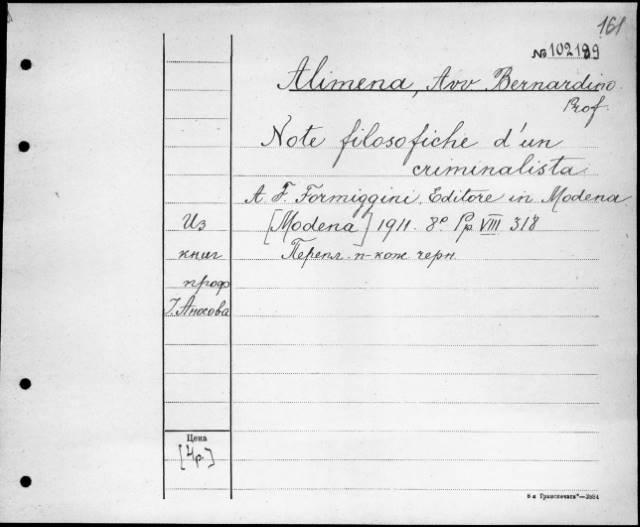 161
№ 102189
Alimena, Avv Bernardino
Prof.
Note filosofiche d'un
criminalista
A. F. Formiggini Editore in Modena
[Modena] 1911. 8º Pp. VIII 318
Перепл. п-кож черн.
Из
книг
проф
І. Аносова
Цена
[4 р.]
6-я Транспечать—3884